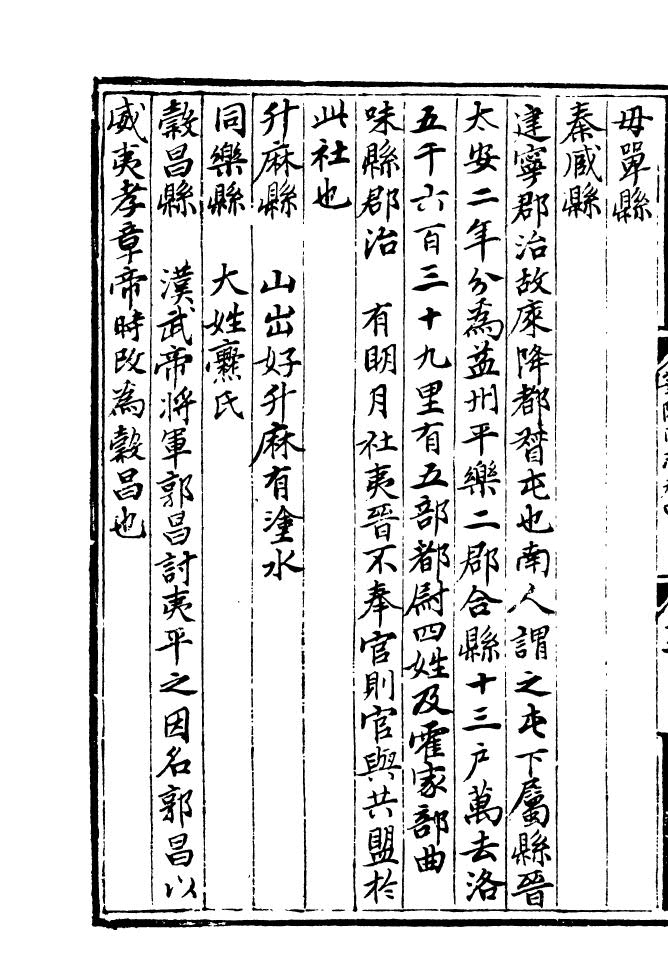 毋單縣
秦臧縣
建寧郡治故庲降都督屯也南人謂之屯下屬縣晉
太安二年分爲益州平樂二郡合縣十三户萬去洛
五千六百三十九里有五部都尉四姓及霍家部曲
味縣郡治 有明月社夷晉不奉官則官與共盟於
此社也
升麻縣 山出好升麻有塗水
同樂縣 大姓爨氏
穀昌縣 漢武帝将軍郭昌討夷平之因名郭昌以
威夷孝章帝時改為穀昌也